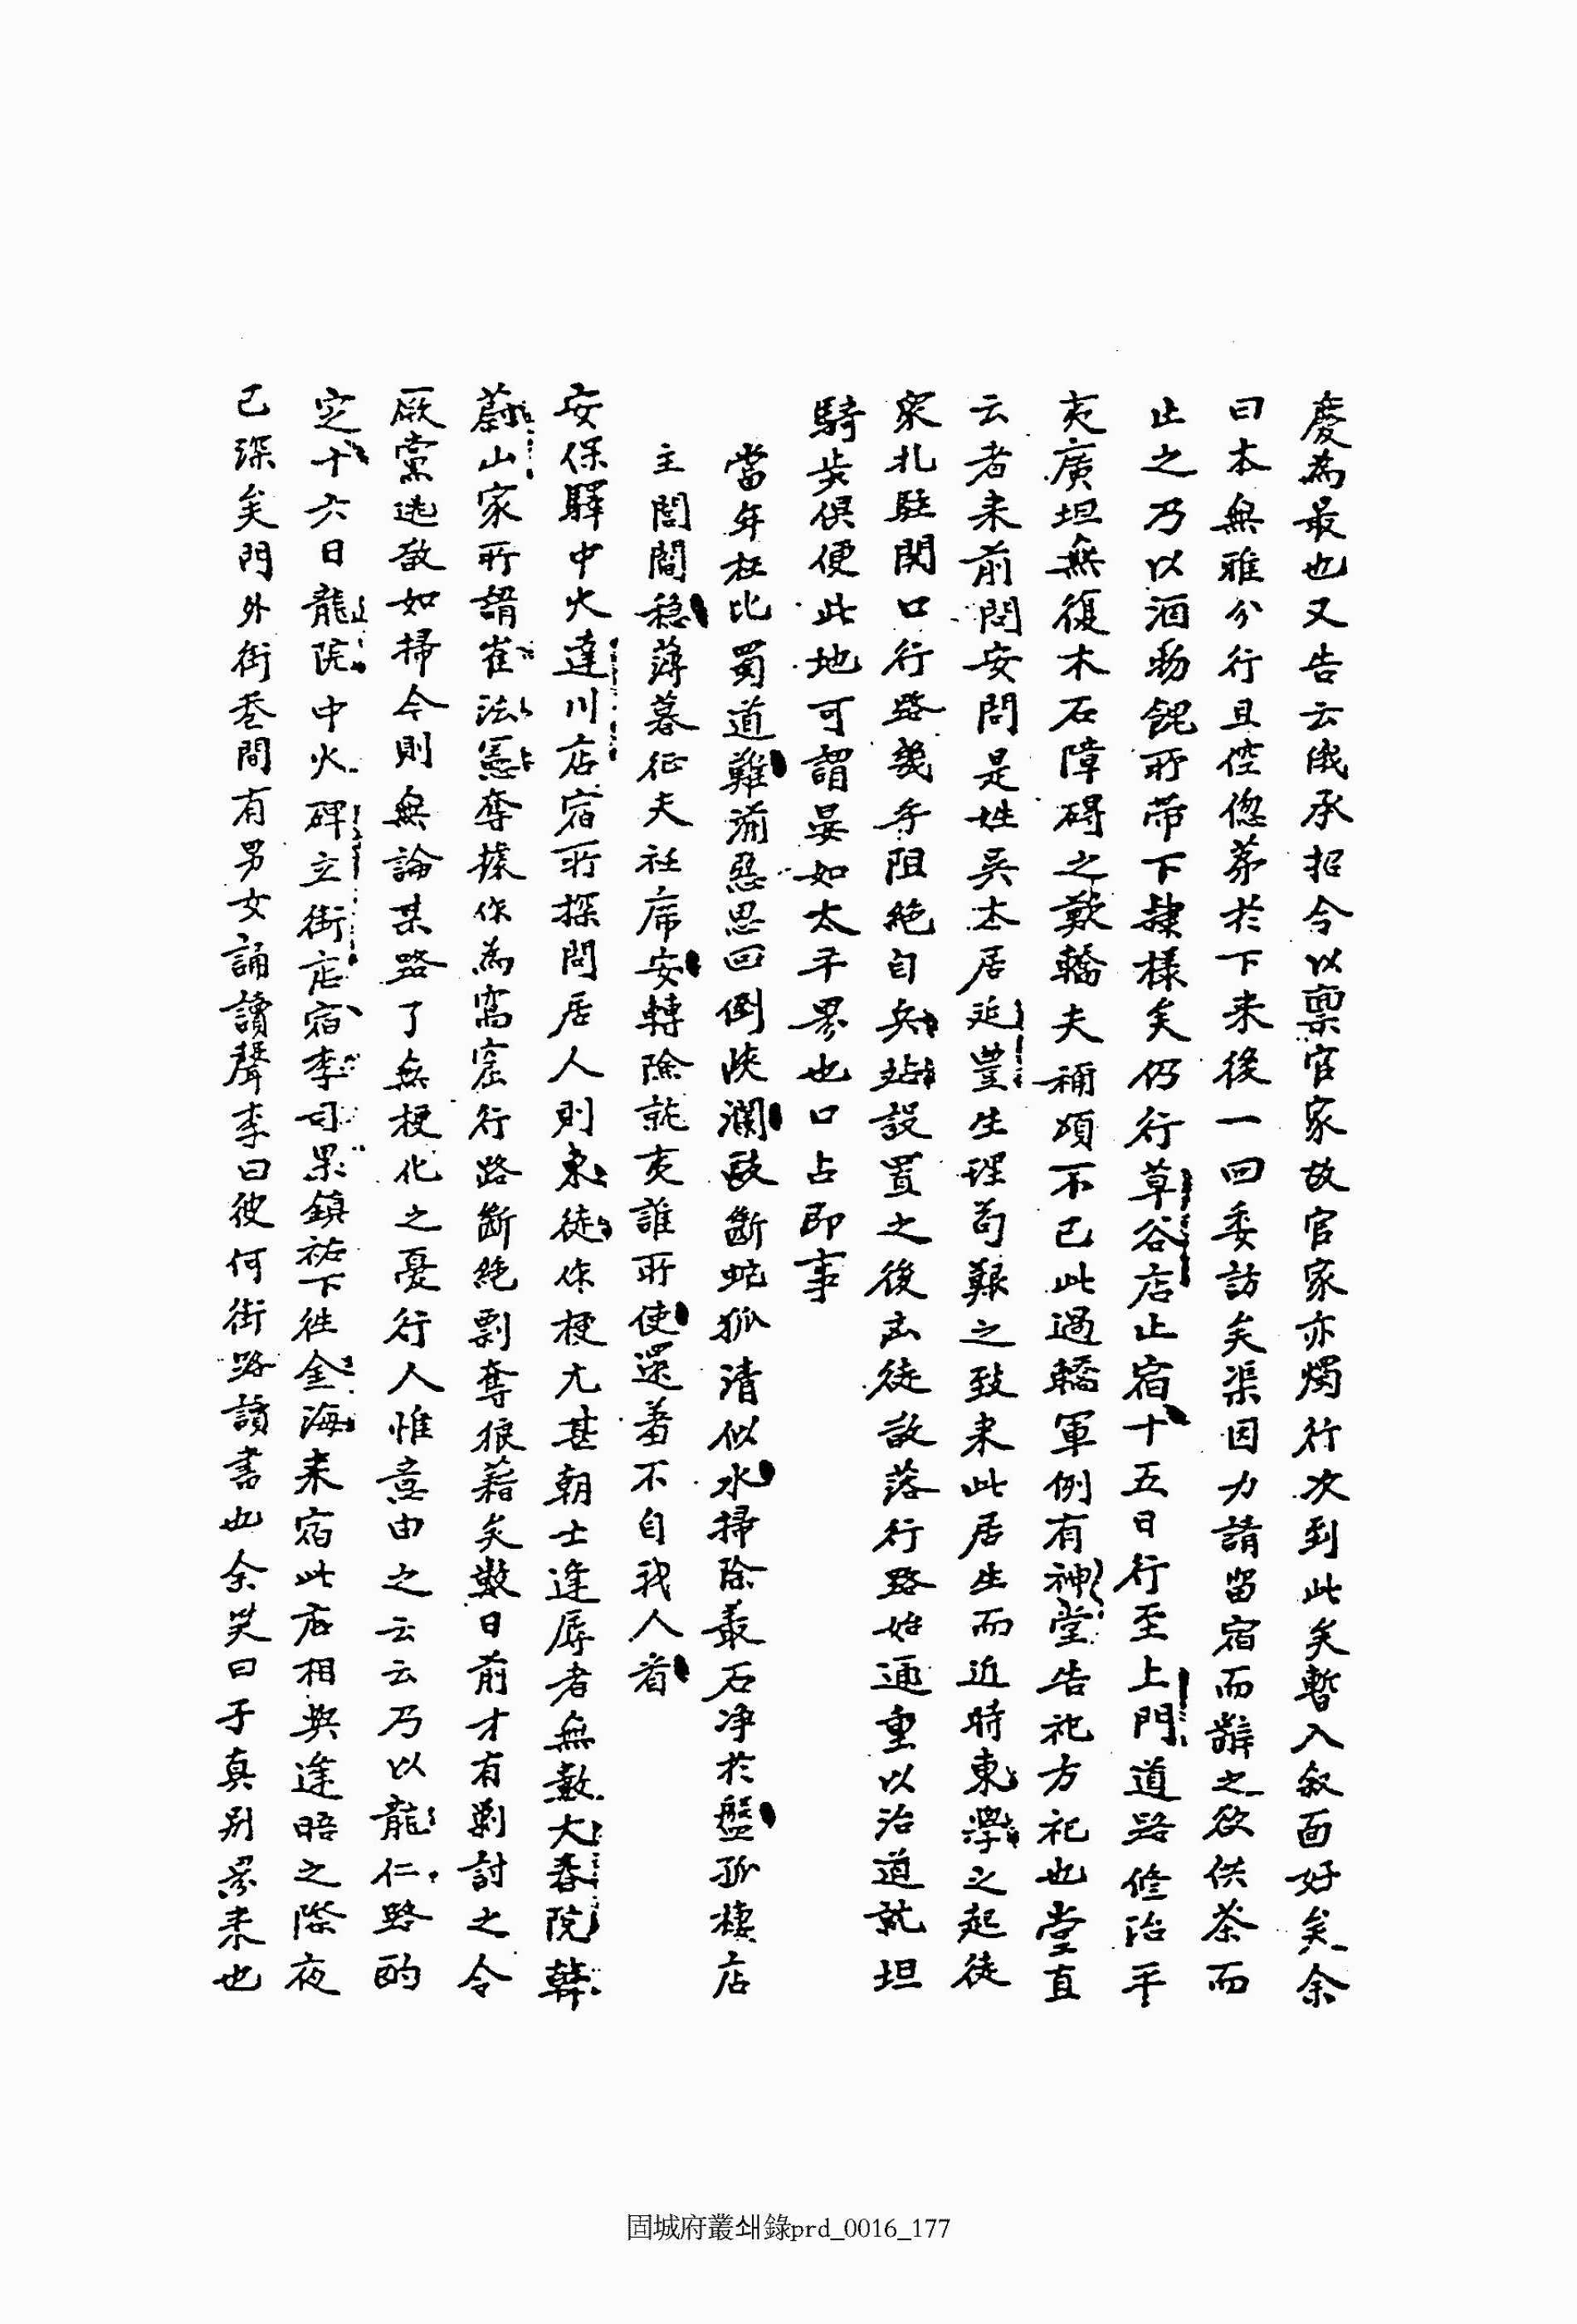 慶為最也又告云俄承招令以稟官家故官家亦燭行次到此矣暫入叙面好矣余
曰本無雅分行且倥偬第於下来後一回委訪矣渠因力請留宿而辭之欲供茶而
止之乃以酒物餽所帶下隸様矣仍行草谷店止宿十五日行至上門道路修治平
夷廣坦無復木石障碍之歎轎夫稱頌不已此過轎軍例有神堂告祀方祀也堂直
云者来前問安問是姓吳太居延豊生理苟艱之致来此居生而近時東學之起徒
衆札駐関口行路幾乎阻絶自兵站設置之後玄徒散落行路始通重以治道就坦
騎步俱便此地可謂晏如太平界也口占即事
當年枉比蜀道難湔惡思回倒峽瀾敺斷蛇狐清似水掃除叢石净於盤孤棲店
主閭閻穏薄暮征夫衽席安轉險就夷誰所使還羞不自我人看
安保驛中火達川店宿所探問居人則東徒作梗尤甚朝士逢辱者無數大春院韓
蔚山家所謂崔法憲奪據作為窩窟行路斷絶剽奪狼藉矣數日前才有剿討之令
厥黨逃散如掃今則無論某路了無梗化之憂行人惟意由之云云乃以龍仁路酌
定十六日龍院中火碑立街店宿李司果鎮祐下徃金海来宿此店相與逢晤之際夜
已深矣門外街巷間有男女誦讀聲李曰彼何街路讀書也余笑曰子真别界来也
固城府叢쇄錄prd_0016_177